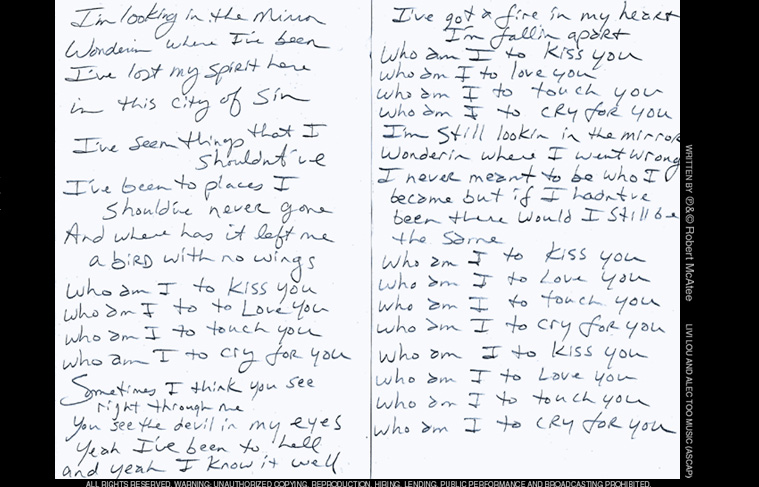 I'm looking in the Mirror
Wonderin where I've been
I've lost my spirit here
in this city of Sin
I've seen things that I
Shouldnt've
I've been to places I
Should've never gone
And where has it left me
a BIRD with no wings
Who am I to Kiss you
Who am I to to Love you
who am I to touch you
who am I to cry for you
Sometimes I think you see
right through me
You see the devil in my eyes
Yeah I've been to hell
and yeah I know it well
I've got a fire in my heart
I'm fallin apart
Who am I to Kiss you
who am I to love you
who am I to touch you
who am I to CRY for you
I'm Still lookin in the mirror
Wonderin where I went wrong
I never meant to be who I
became but if I hadnt've
been there would I Still be
the same
Who am I to Kiss you
who am I to Love you
who am I to touch you
who am I to cry for you
who am I to Kiss you
who am I to Love you
who am I to touch you
who am I to CRY for you
WRITTEN BY ℗&© Robert McAtee
LIVI LOU AND ALEC TOO MUSIC (ASCAP)
ALL RIGHTS RESERVED. WARNING: UNAUTHORIZED COPYING, REPRODUCTION, HIRING, LENDING, PUBLIC PERFORMANCE AND BROADCASTING PROHIBITED.